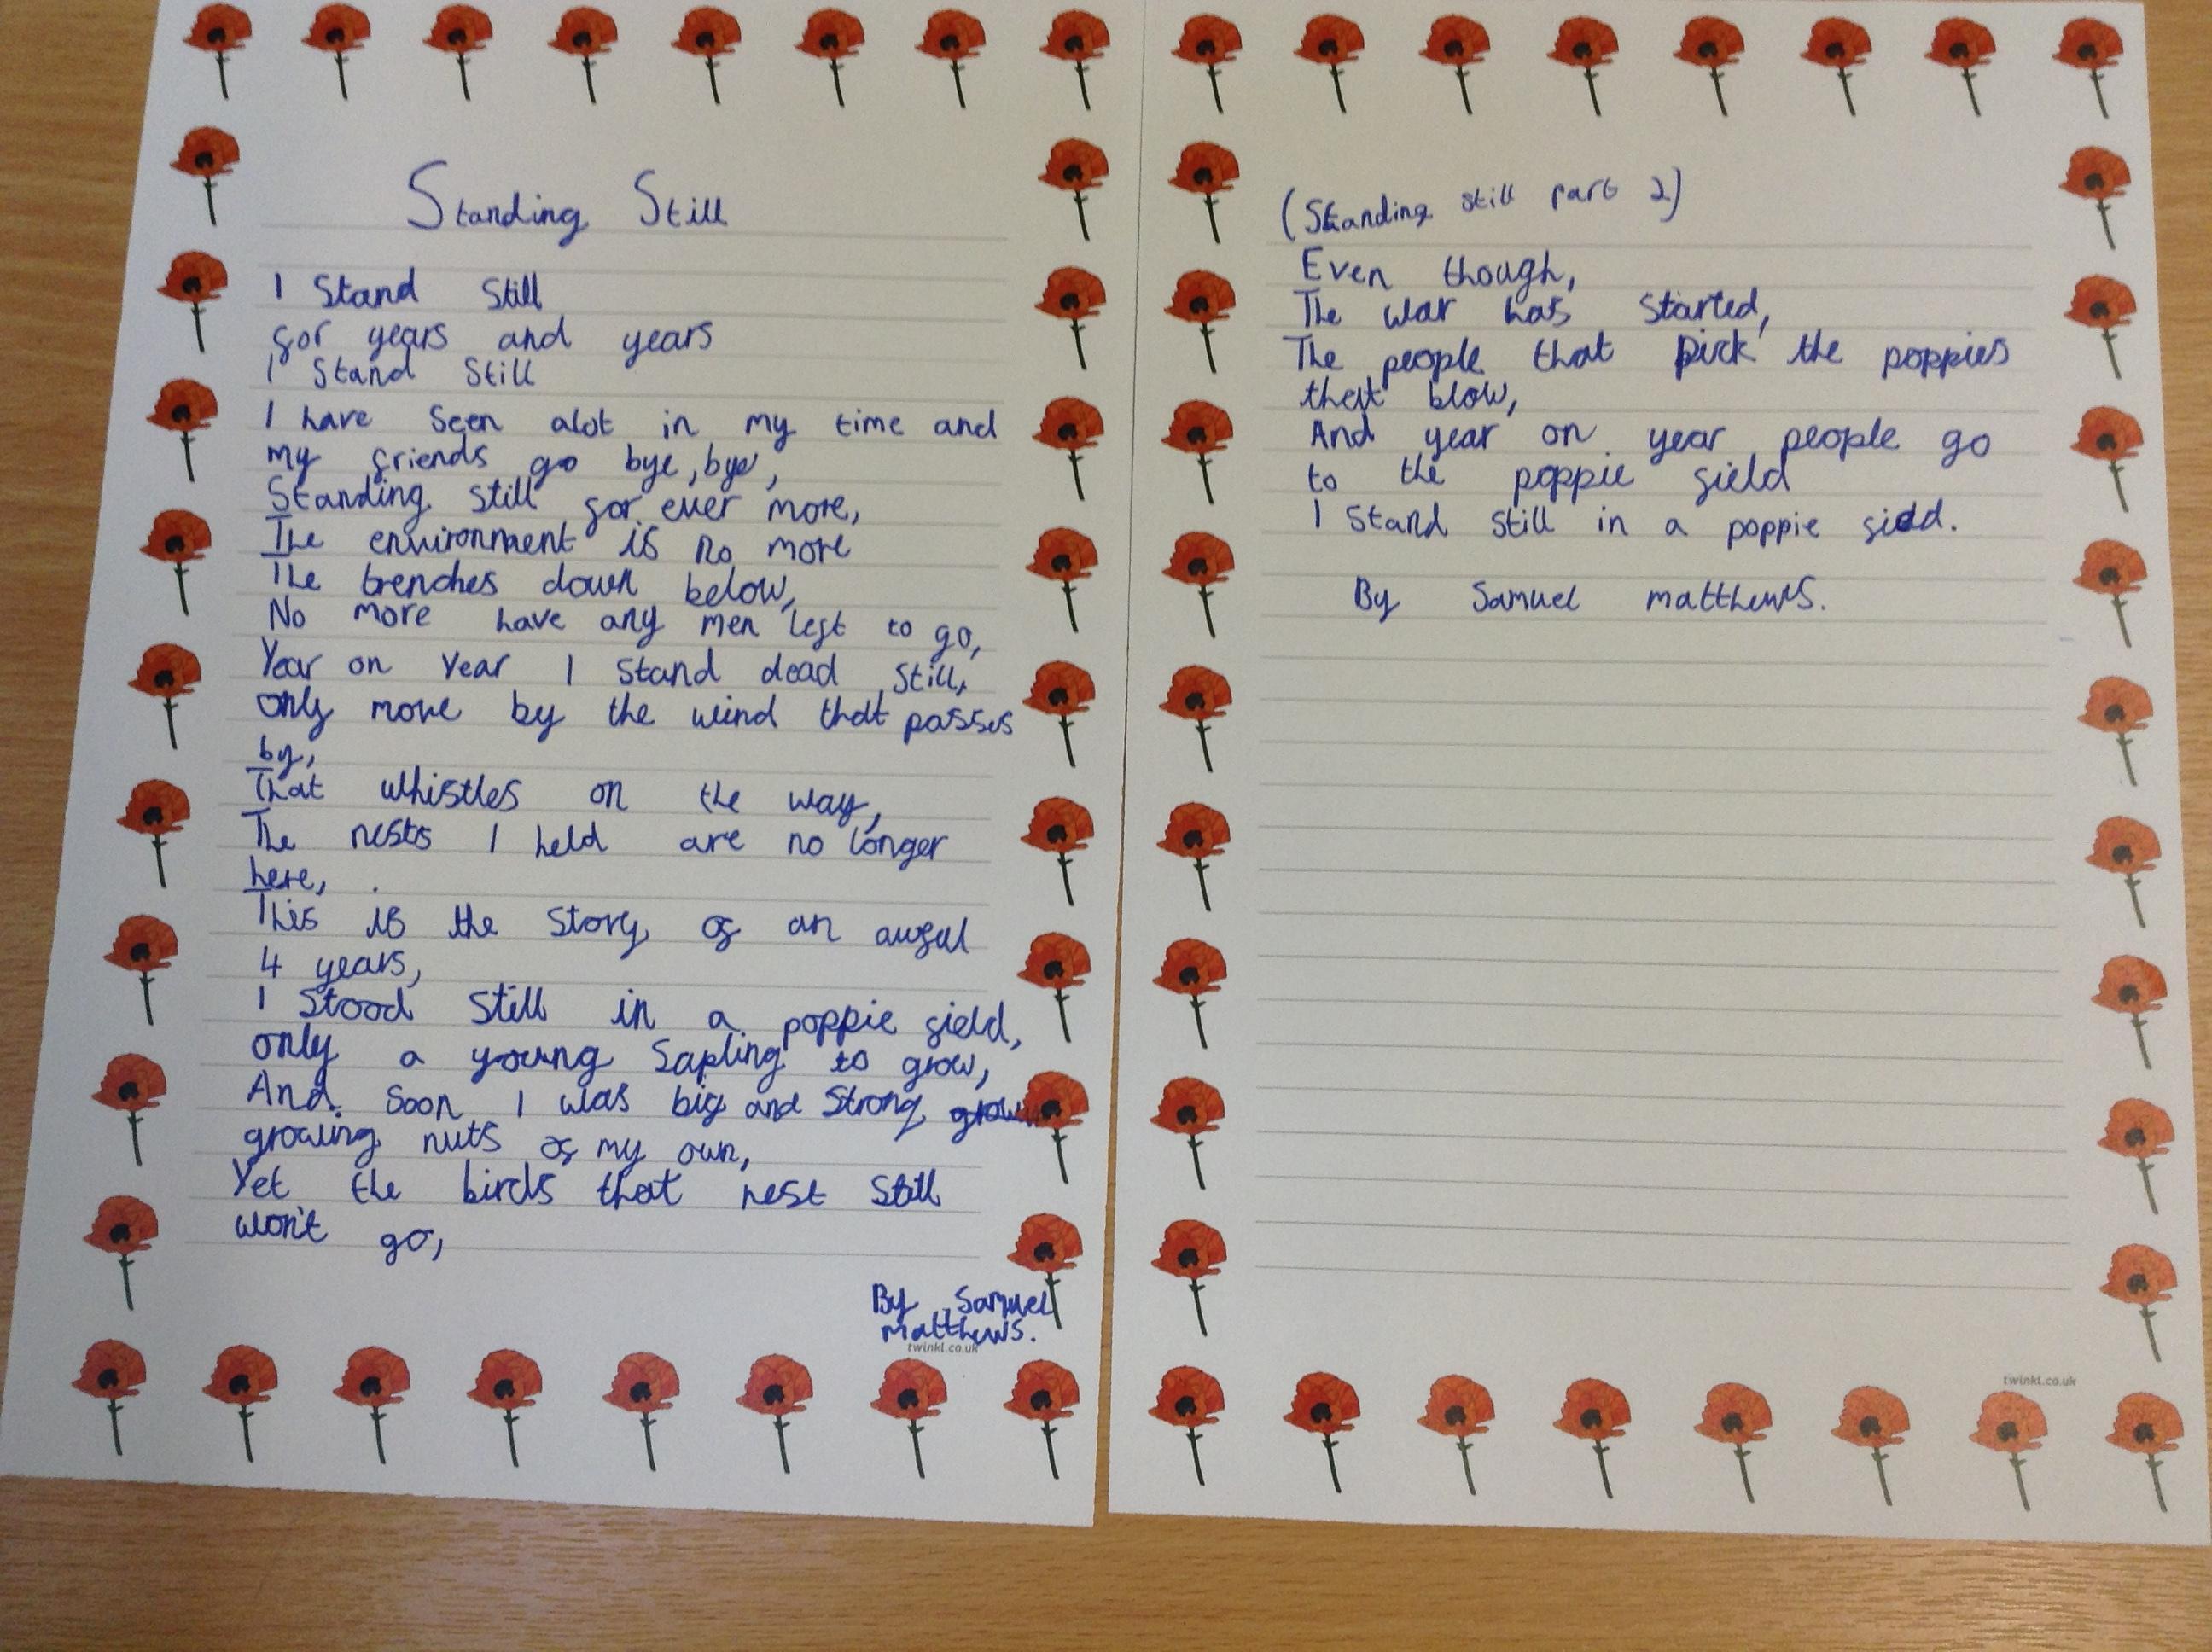 Standing Still
I Stand Still
for years and years
I Stand Still
I have Seen alot in my time and
my friends go bye, bye,
Standing still for ever more,
The environment is no more
The trenches down below,
No more have any men left to go,
Year on Year I Stand dead Still,
only move by the wind that passes
by,
That whistles on the way,
The nests I held are no longer
here,
This is the Story of an awful
4 years,
I Stood Still in a poppie field,
only a young Sapling to grow,
And Soon I was big and Strong
growing nuts of my own,
Yet the birds that nest Still
won't go,
By Samuel
matthews.
twinkl.co.uk
(Standing still part 2)
Even though,
The war has Started,
The people that pick the poppies
that blow,
And year on year people go
to the poppie field
I Stand Still in a poppie field.
By Samuel matthews.
twinkl.co.uk